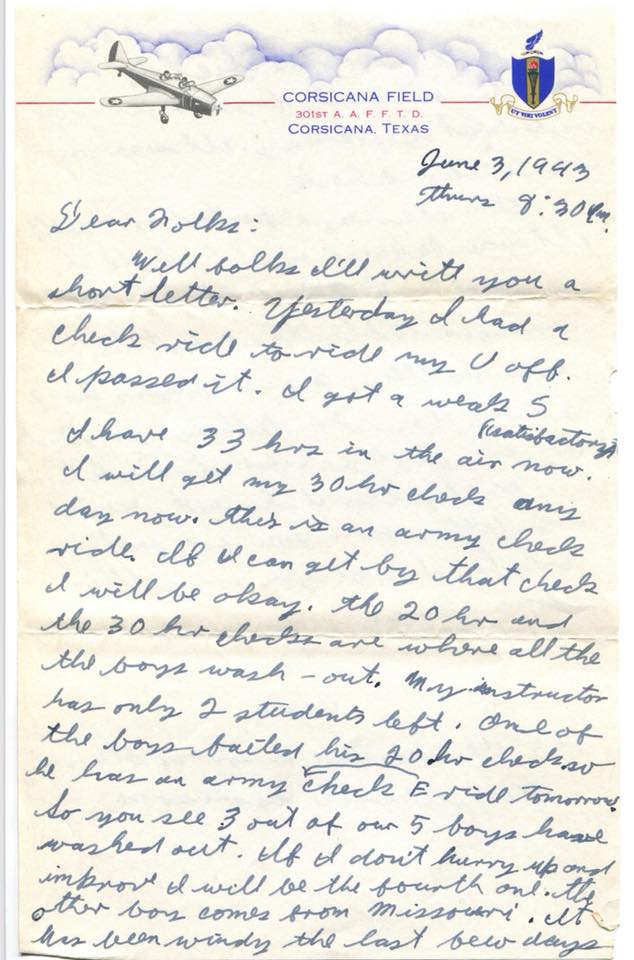 CORSICANA FIELD
301ST A. A. F. F. T. D.
CORSICANA, TEXAS
UT VIRI VOLENT
June 3, 1943
Thurs 8:30 Pm.
Dear Folks:
Well folks I'll write you a
short letter. Yesterday I had a
check ride to ride my U off.
I passed it. I got a weak S
(satisfactory)
I have 33 hrs in the air now.
I will get my 30 hr check any
day now. This is an army check
ride. If I can get by that check
I will be okay. The 20 hr and
the 30 hr checks are where all the
the boys wash-out. My instructor
has only 2 students left. One of
the boys failed his 20 hr check so
he has an army check E ride tomorrow.
So you see 3 out of our 5 boys have
washed out. If I don't hurry up and
improve I will be the fourth one. The
other boy comes from Missouri. It
has been windy the last few days